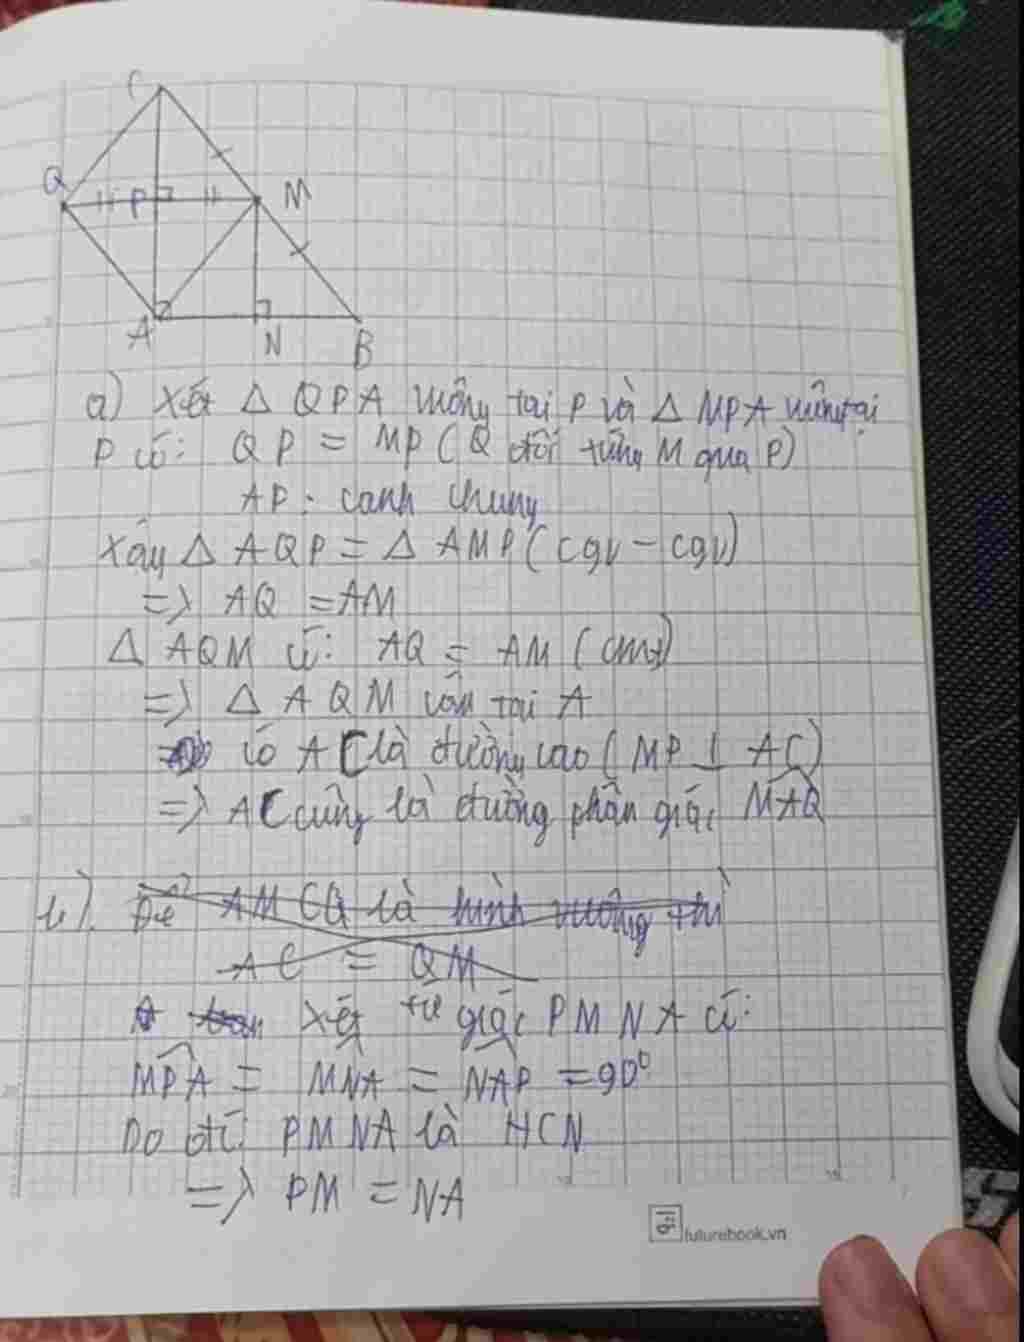 C
Q
P
M
A
N
B
a) Xét Δ QPA vuông tại P và Δ MPA vuông tại
P có: QP = MP (Q đối xứng M qua P)
AP: cạnh chung
Vậy Δ AQP = Δ AMP (cgv - cgv)
=> AQ = AM
Δ AQM có: AQ = AM (cmt)
=> Δ AQM cân tại A
có AC là đường cao (MP ⊥ AC)
=> AC cũng là đường phân giác MAQ
b). Để AMCQ là hình vuông thì
AC = QM
Xét tứ giác PMNA có:
MPA = MNA = NAP = 90°
Do đó: PMNA là HCN
=> PM = NA
futurebook.vn